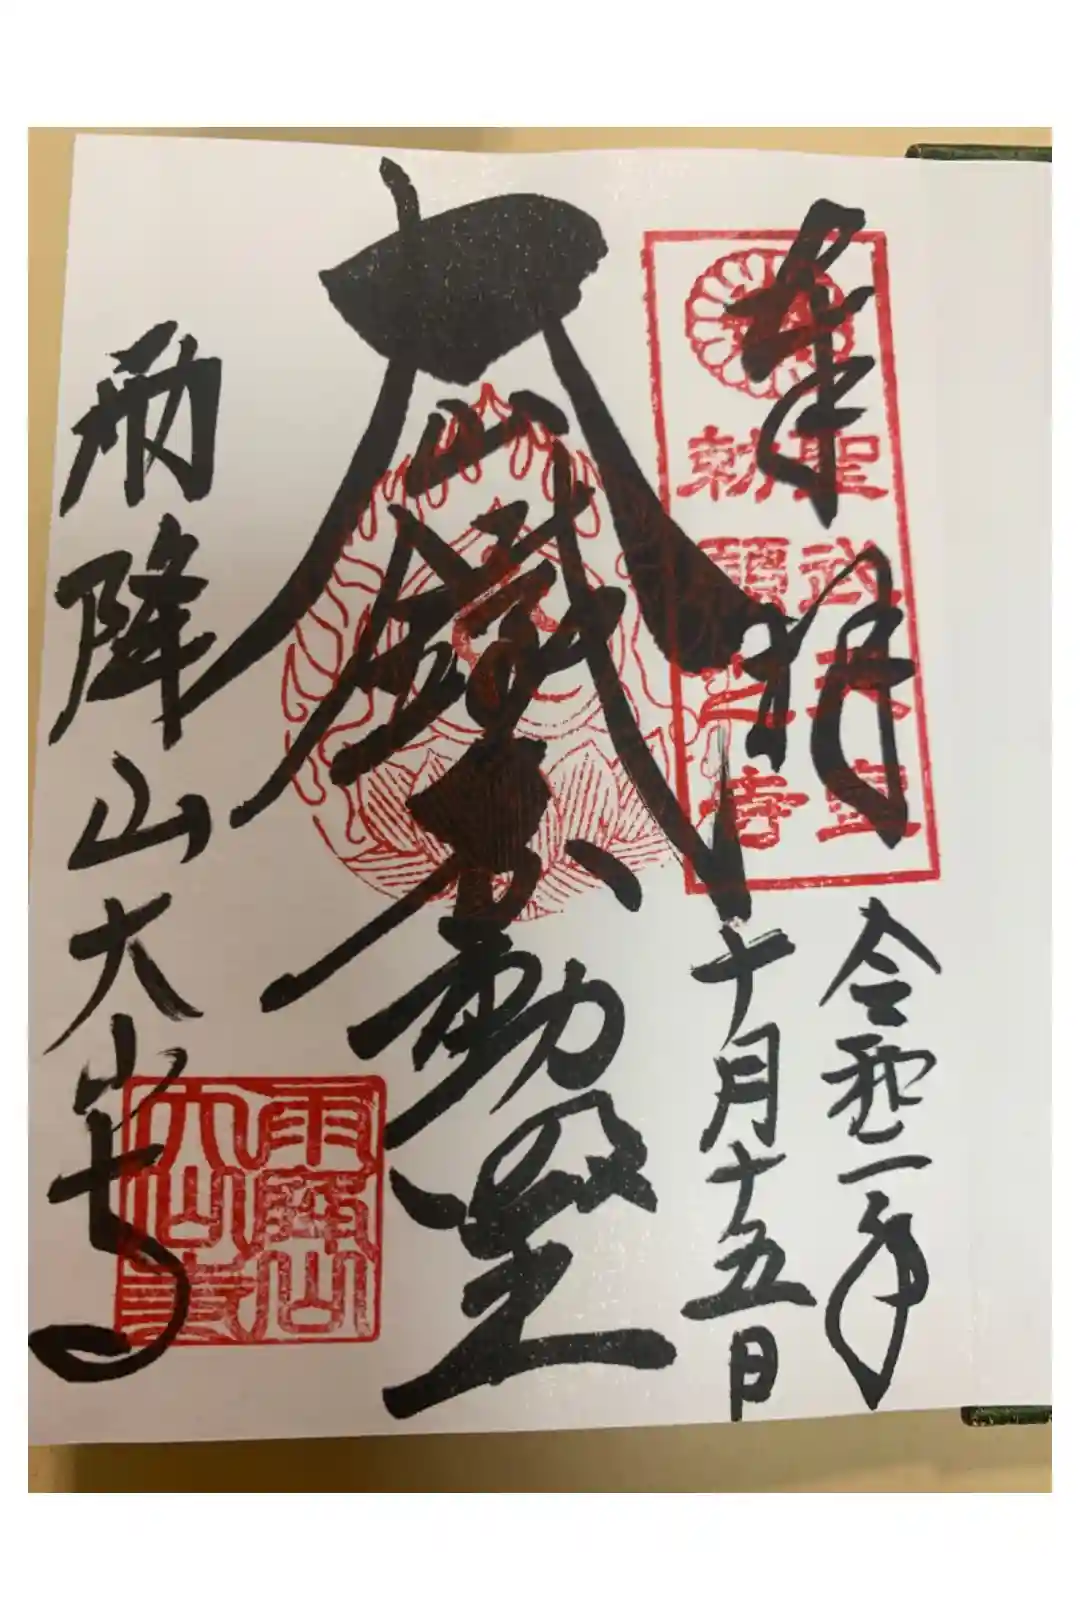 奉拝
聖武天皇
勅願之寺
令和二年
十月十五日
大山鐵不動
雨降山大山寺
雨降山
大山寺